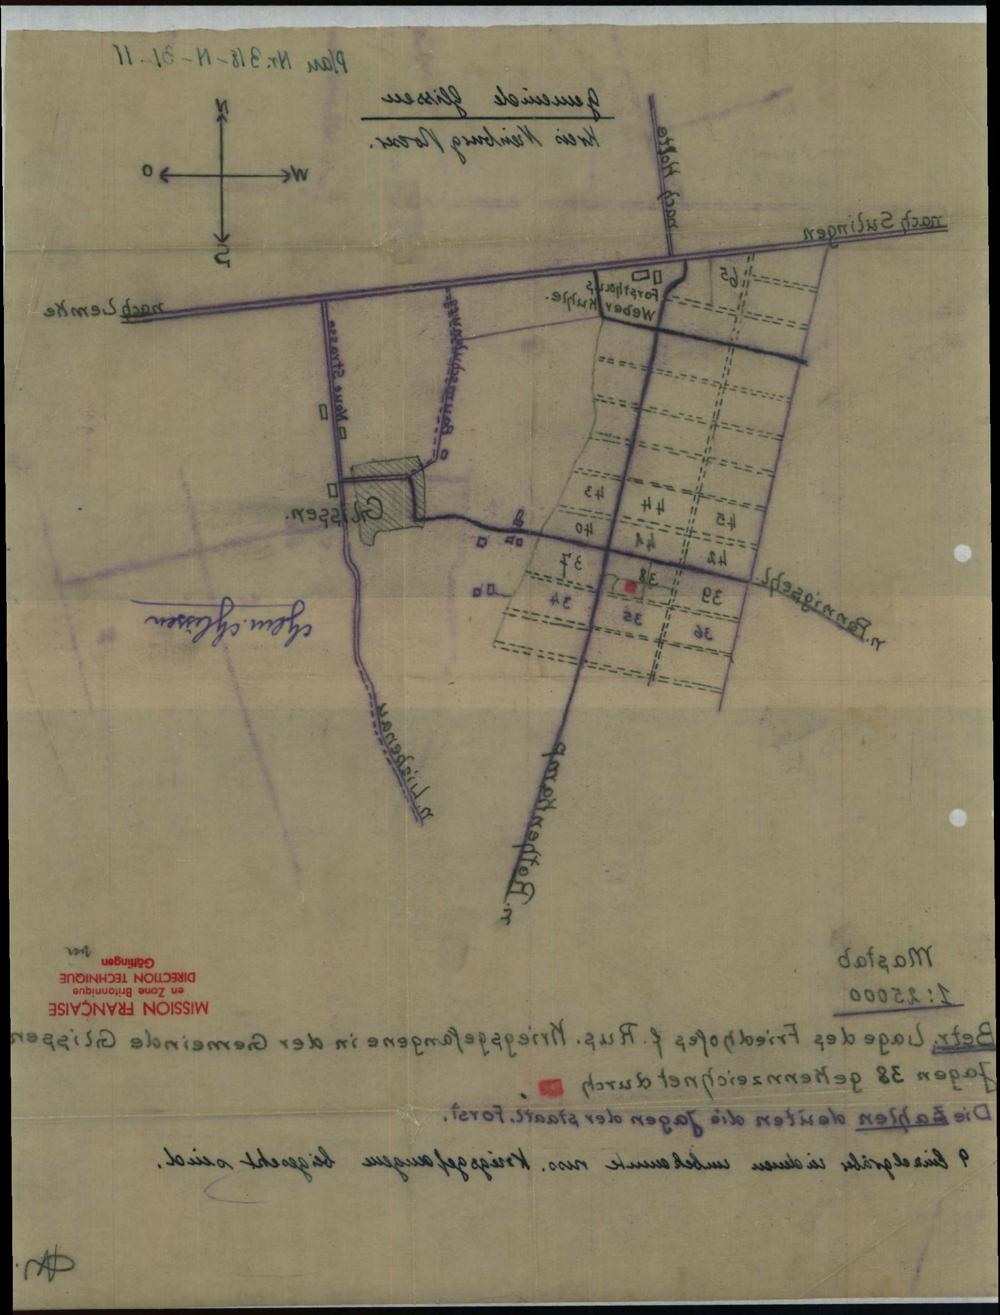 Plan Nr. 3/8-N-31-11
Gemeinde Glissen
Kreis Nienburg/Weser.
N
W
O
S
nach Hoÿa
nach Sulingen
nach Lemke
Forsthaus
Weberkuhle.
65
Neue Strasse
43
44
45
40
41
42
37
38
39
34
35
36
Glissen.
n. Pennigsehl.
Gem. Glissen
n. Liebenau
n. Rothenkamp
Maßtab
1:25000
MISSION FRANÇAISE
en Zone Britannique
DIRECTION TECHNIQUE
Göttingen
Betr. Lage des Friedhofes f. Rus. Kriegsgefangene in der Gemeinde Glissen
Jagen 38 gekennzeichnet durch
Die Zahlen deuten die Jagen der staatl. Forst.
9 Einzelgräber in denen unbekannte russ. Kriegsgefangene beigesetzt sind.